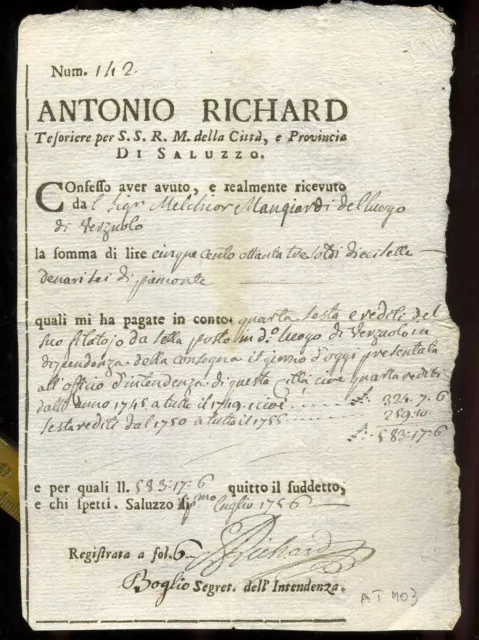 Num. 142.
ANTONIO RICHARD
Tesoriere per S. S. R. M. della Città, e Provincia
DI SALUZZO.
COnfesso aver avuto, e realmente ricevuto
dal Sigr Melchior Mangiardi del luogo
di Verzuolo
la somma di lire cinque cento ottanta tre soldi diecisette
denari sei di piemonte
quali mi ha pagate in conto quarta sesta e redditi del
suo filatojo da setta posto in d.o luogo di Verzuolo in
dipendenza della consegna il giorno d'oggi presentata
all'officio d'intendenza di questa città cioè quarta redditi
dall'anno 1745 a tutto il 1749 324.7.6
sesta redditi dal 1750 a tutto il 1755 259.10.
583:17:6
e per quali ll. 583:17:6 quitto il suddetto,
e chi spetti. Saluzzo li luglio 1756
Registrata a fol. 6 Richard
Boglio Segret. dell' Intendenza.
AT M03